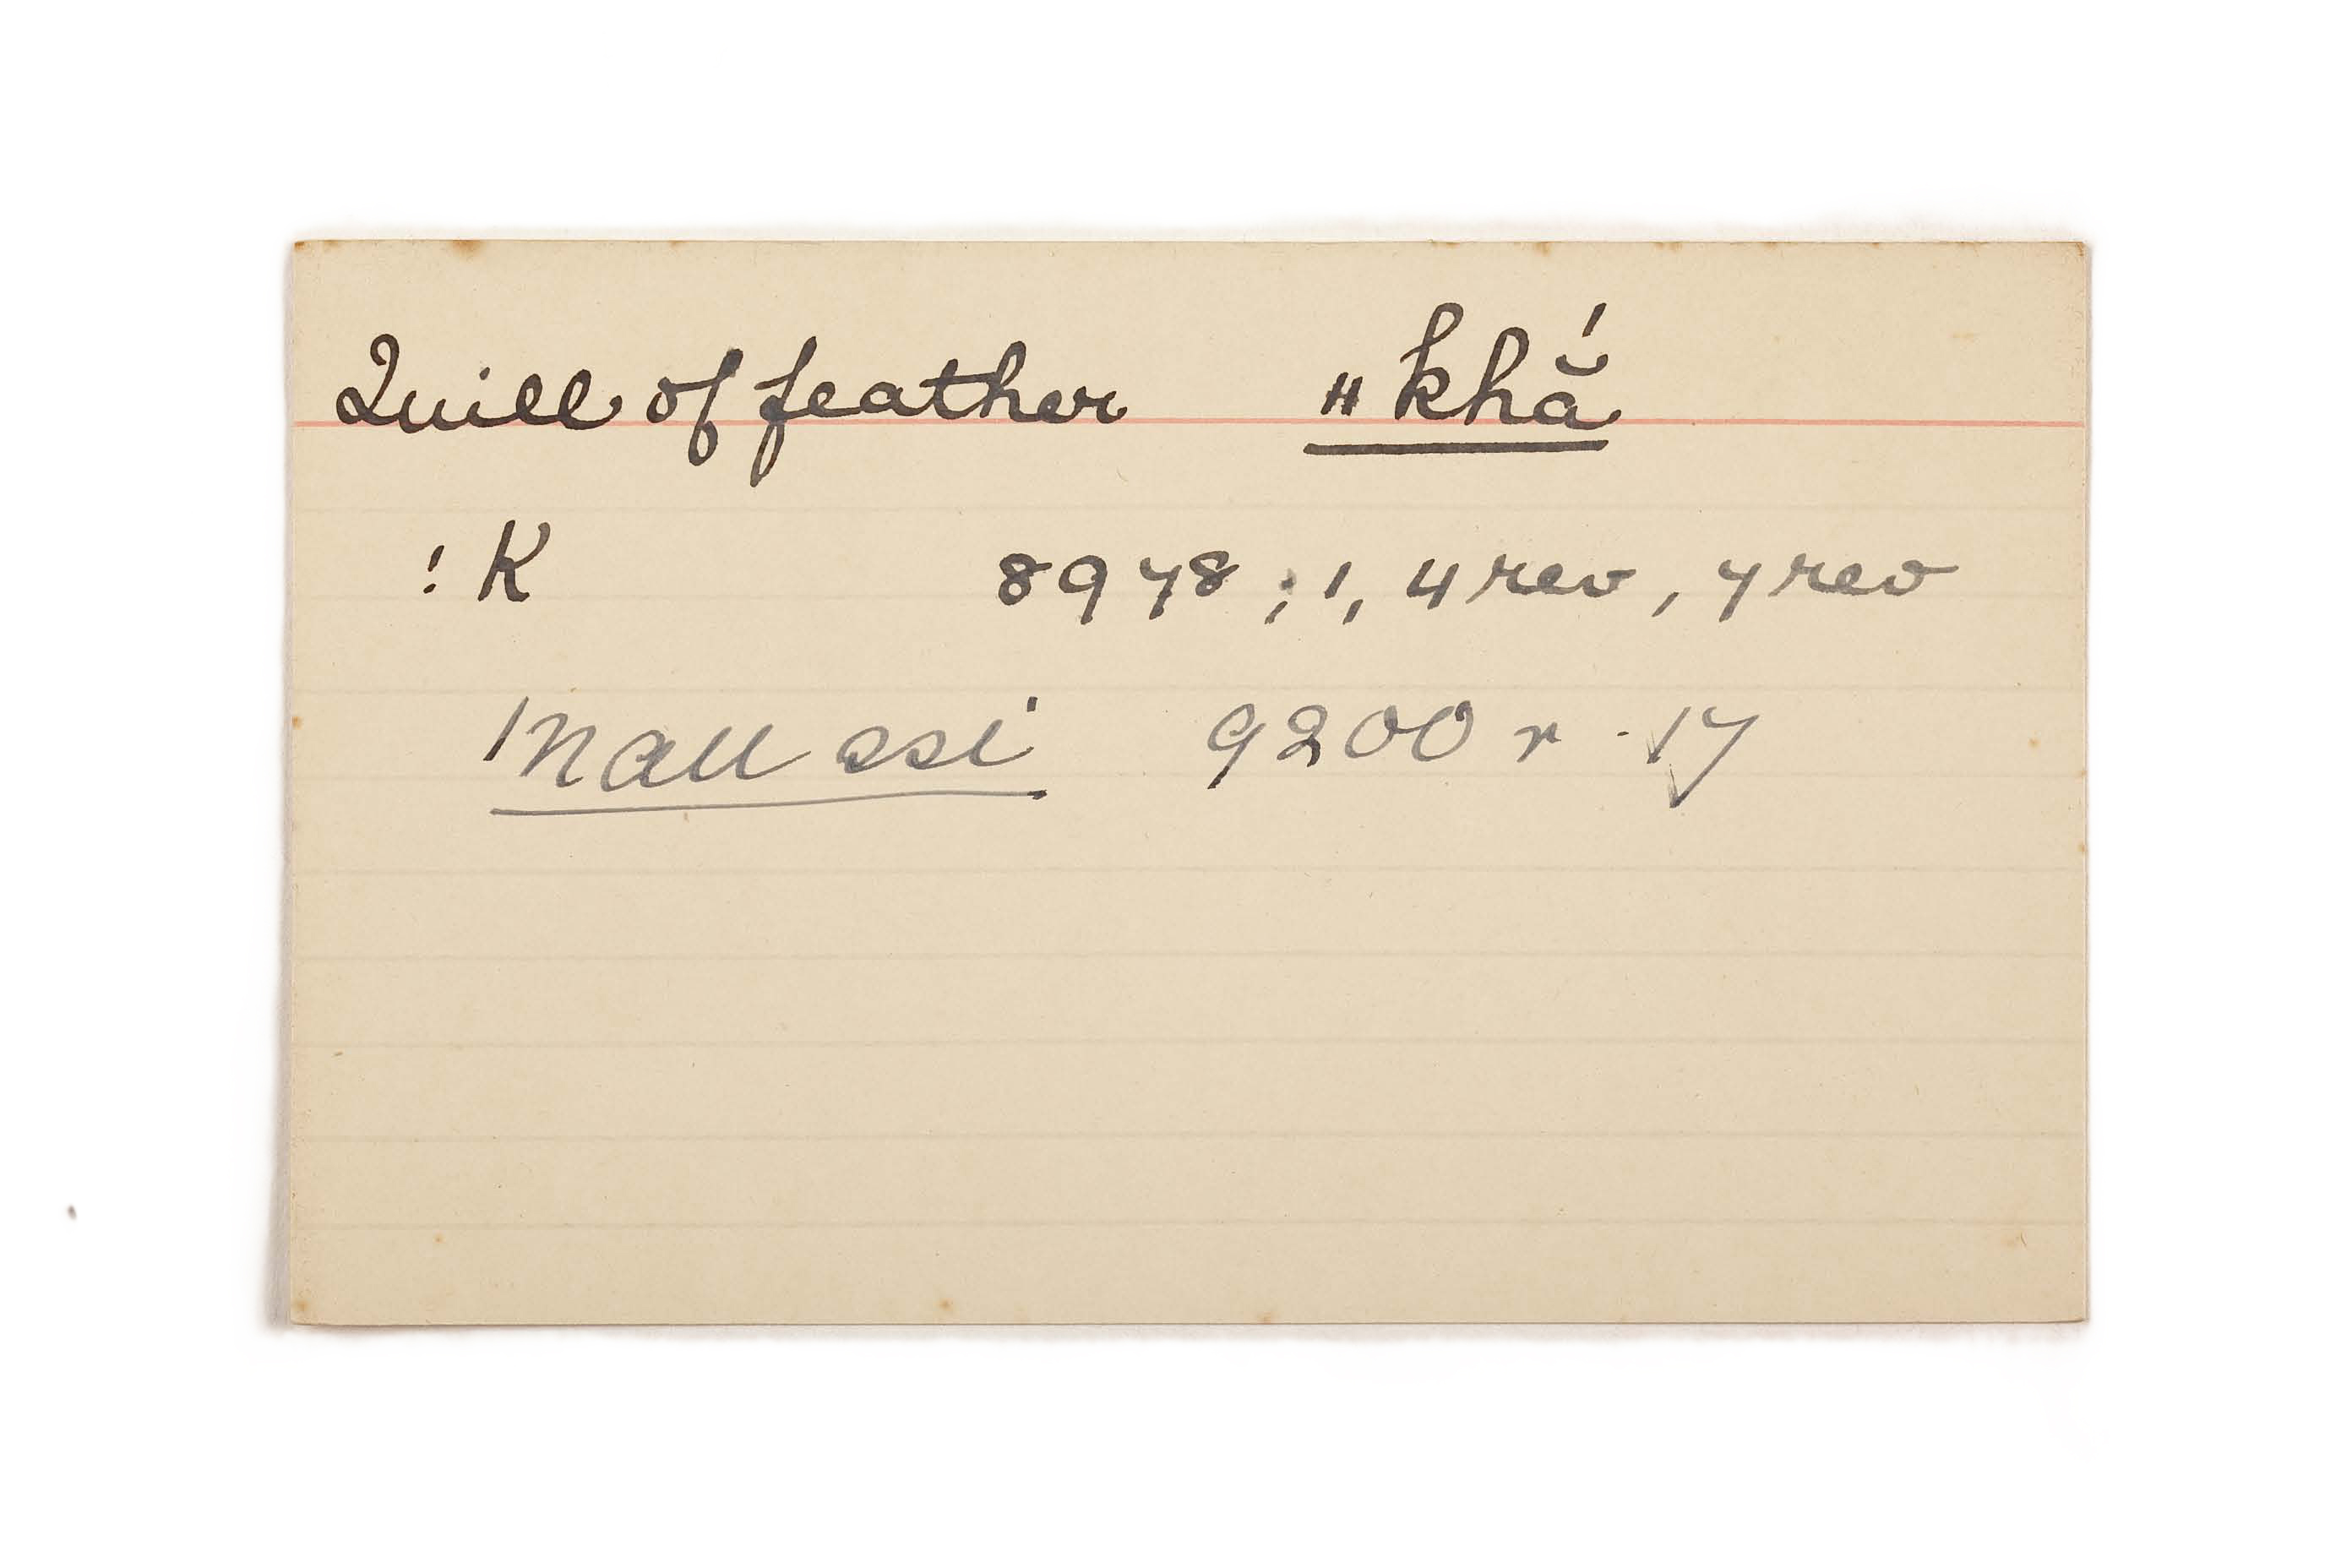 Quill of feather ǂkhắ
! K 8978 ; 1, 4 rev, 7 rev
9200 r. 17